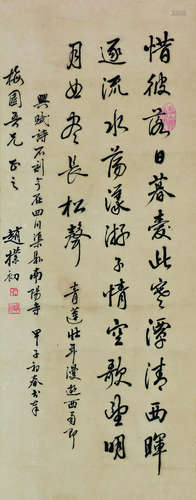 惜彼落日暮爱此寒潭清西晖
逐流水荡漾游子情空歌望明
月曲尽长松声 青莲壮年漫游西蜀
兴赋诗石刻今在四川渠县南阳寺
甲子初春书奉
梅园吾兄正之
赵朴初